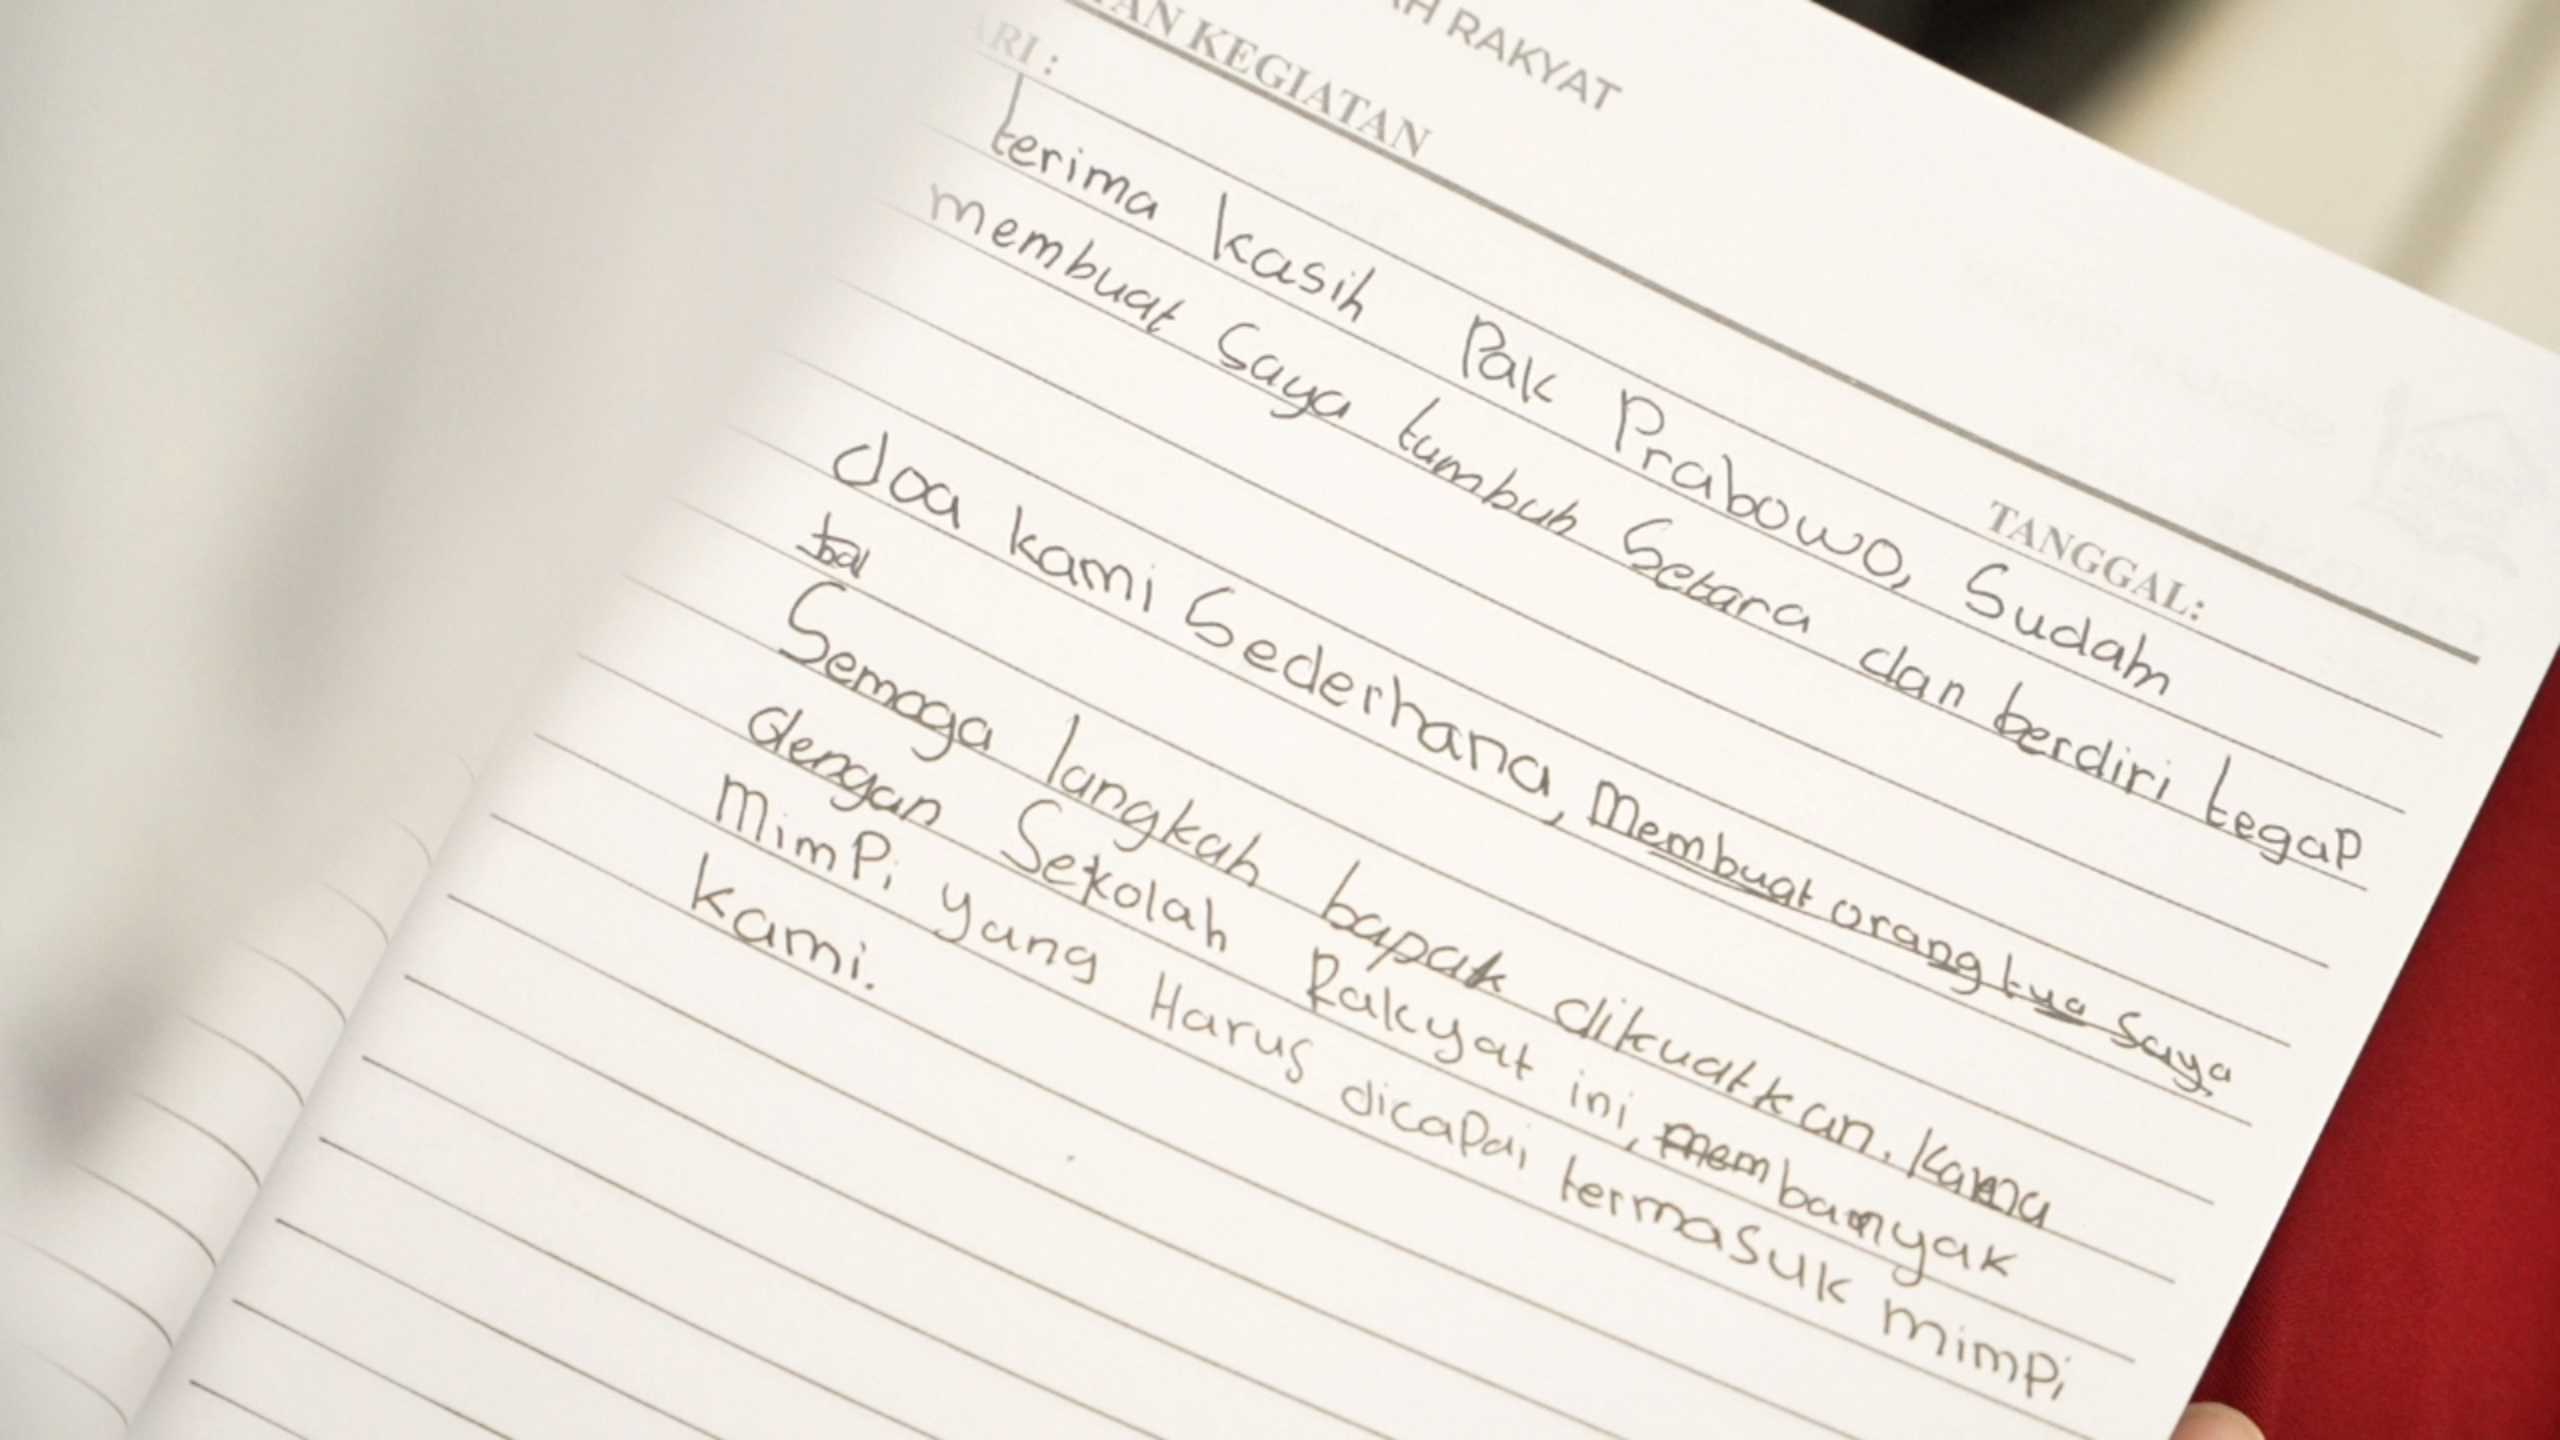 AH RAKYAT
TAN KEGIATAN
ARI :
TANGGAL:
terima kasih Pak Prabowo, Sudah
membuat Saya tumbuh Setara dan berdiri tegap
doa kami Sederhana, Membuat orang tua Saya
bal
Semoga langkah bapak dikuatkan. Karna
dengan Sekolah Rakyat ini, mem banyak
MimPi yang Harus dicaPai termasuk mimPi
kami.